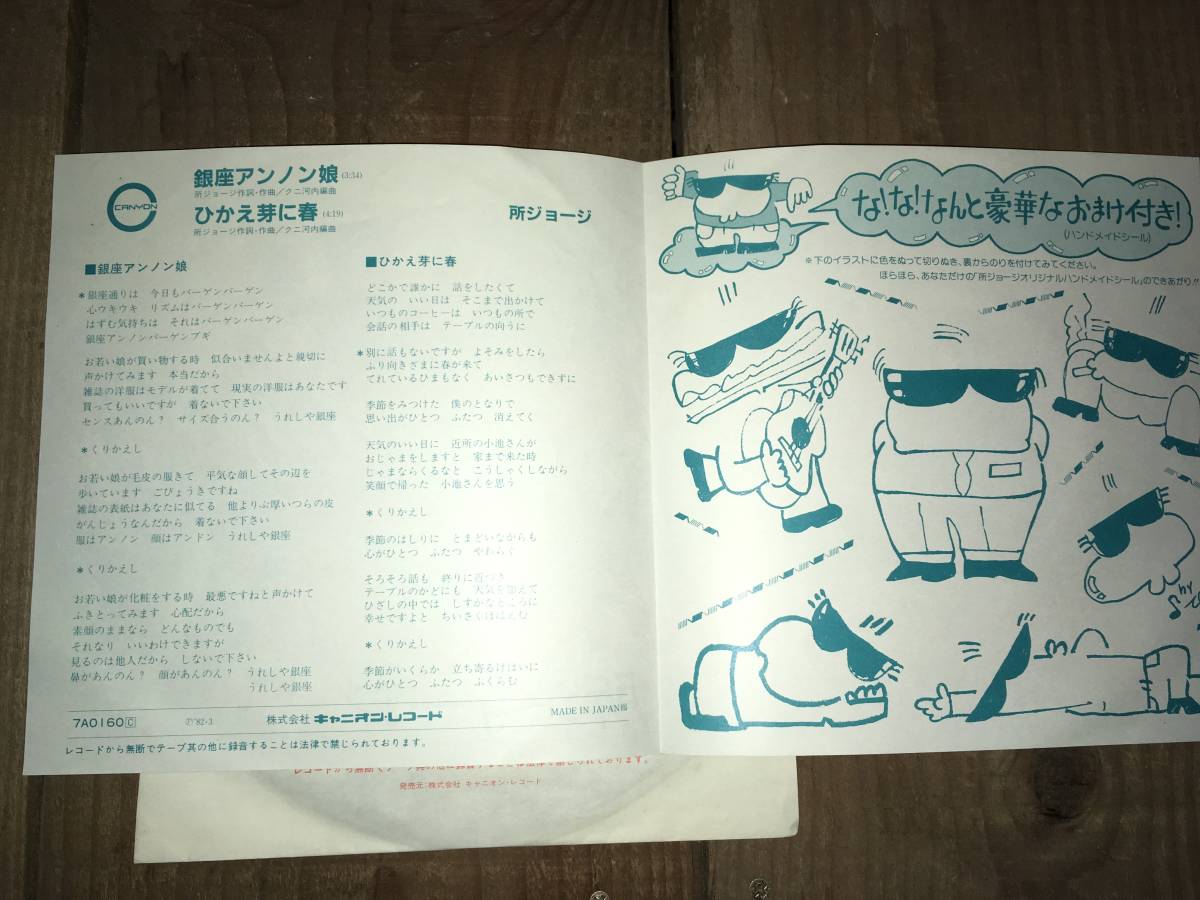 CANYON
銀座アンノン娘(3:34)
所ジョージ作詞・作曲/クニ河内編曲
ひかえ芽に春(4:19)
所ジョージ作詞・作曲/クニ河内編曲
所ジョージ
■銀座アンノン娘
*銀座通りは 今日もバーゲンバーゲン
心ウキウキ リズムはバーゲンバーゲン
はずむ気持ちは それはバーゲンバーゲン
銀座アンノンバーゲンブギ
お若い娘が買い物する時 似合いませんよと親切に
声かけてみます 本当だから
雑誌の洋服はモデルが着てて 現実の洋服はあなたです
買ってもいいですが 着ないで下さい
センスあんのん? サイズ合うのん? うれしや銀座
*くりかえし
お若い娘が毛皮の服きて 平気な顔してその辺を
歩いています ごびょうきですね
雑誌の表紙はあなたに似てる 他よりぶ厚いつらの皮
がんじょうなんだから 着ないで下さい
服はアンノン 顔はアンドン うれしや銀座
*くりかえし
お若い娘が化粧をする時 最悪ですねと声かけて
ふきとってみます 心配だから
素顔のままなら どんなものでも
それなり いいわけできますが
見るのは他人だから しないで下さい
鼻があんのん? 顔があんのん? うれしや銀座
うれしや銀座
■ひかえ芽に春
どこかで誰かに 話をしたくて
天気の いい日は そこまで出かけて
いつものコーヒーは いつもの所で
会話の相手は テーブルの向うに
*別に話もないですが よそみをしたら
ふり向きざまに春が来て
てれているひまもなく あいさつもできずに
季節をみつけた 僕のとなりで
思い出がひとつ ふたつ 消えてく
天気のいい日に 近所の小池さんが
おじゃまをしますと 家まで来た時
じゃまならくるなと こうしゃくしながら
笑顔で帰った 小池さんを思う
*くりかえし
季節のはしりに とまどいながらも
心がひとつ ふたつ やわらぐ
そろそろ話も 終りに近づき
テーブルのかどにも 天気を加えて
ひざしの中では しずかなところに
幸せですよと ちいさくほほえむ
*くりかえし
季節がいくらか 立ち寄るけはいに
心がひとつ ふたつ ふくらむ
7A0160 C ℗'82・3 株式会社 キャニオン・レコード MADE IN JAPAN
レコードから無断でテープ其の他に録音することは法律で禁じられております。
レコードから無断でテープ其の他に録音することは法律で禁じられております。
発売元:株式会社 キャニオン・レコード
な!な!なんと豪華なおまけ付き!
(ハンドメイドシール)
※下のイラストに色をぬって切りぬき、裏からのりを付けてみてください。
ほらほら、あなただけの「所ジョージオリジナルハンドメイドシール」のできあがり!!